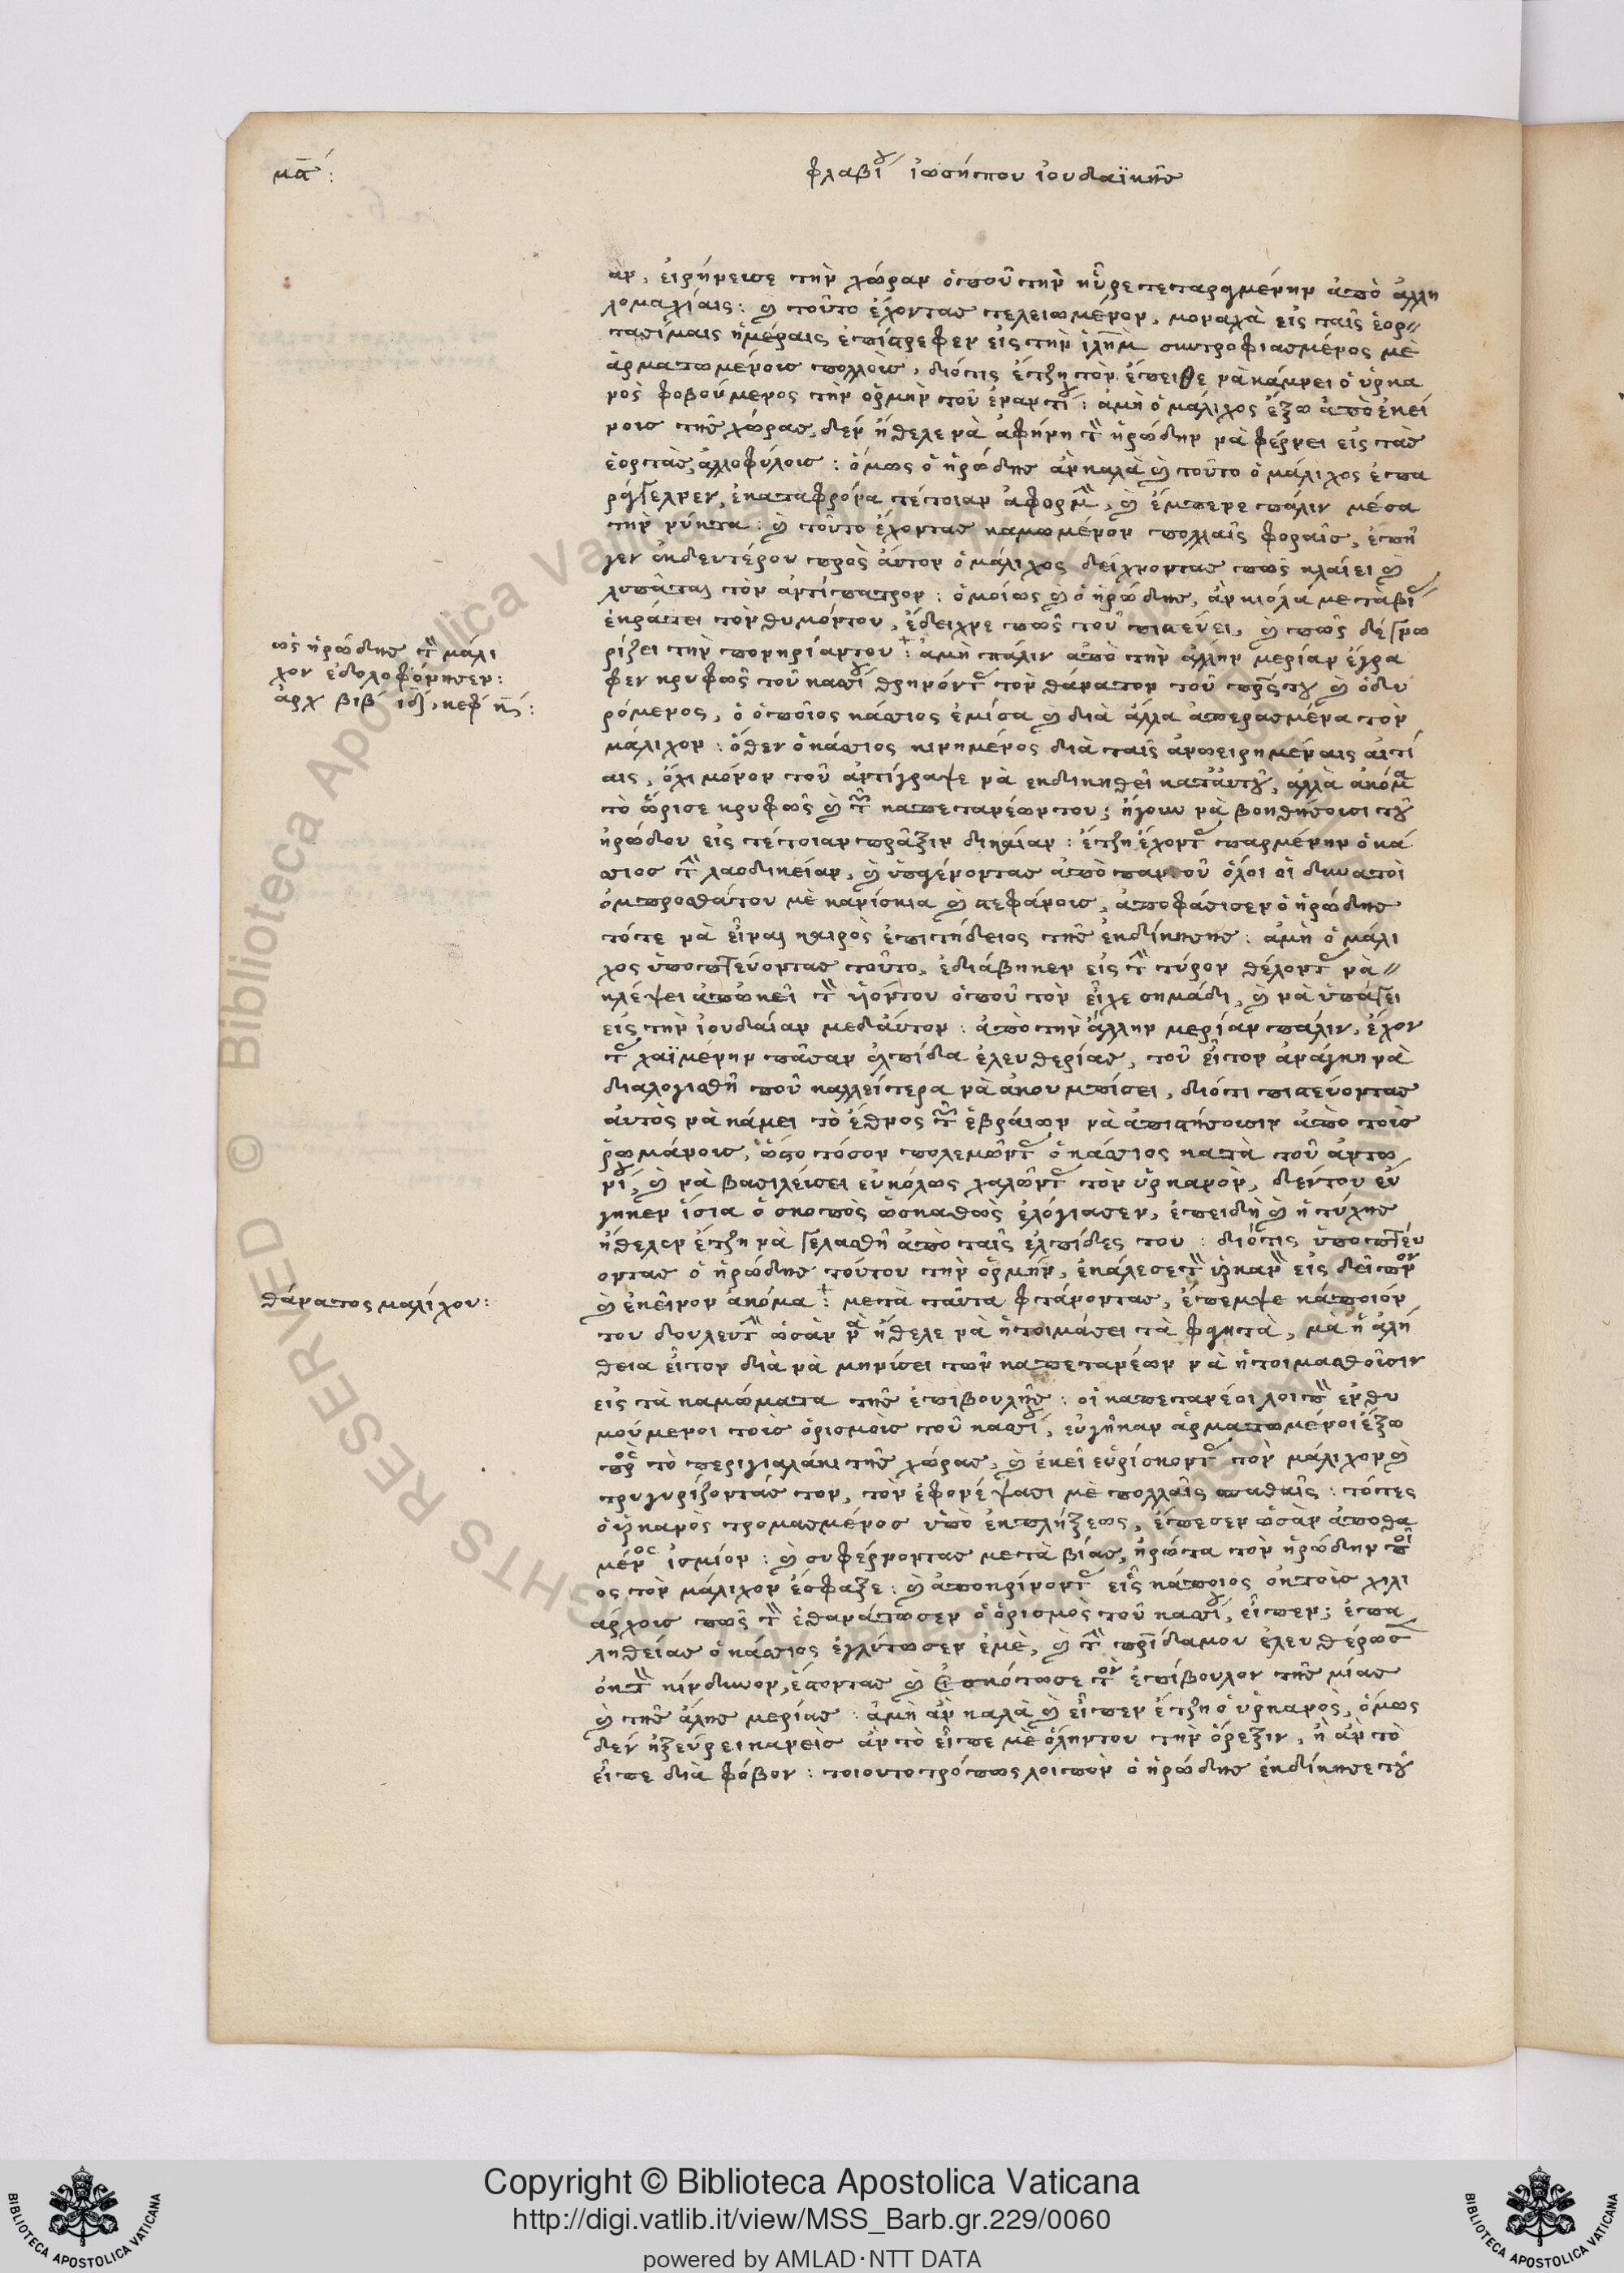 μα´:
φλαβίου ἰωσήπου ἰουδαϊκῆς
ὰν, εἰρήνεισε τὴν χώραν ὁποῦ τὴν ηὗρε τεταραγμένην ἀπὸ ἀλλη
λομαχίαις: καὶ τοῦτο ἔχοντας τελειωμένον, μοναχὰ εἰς ταῖς ἑορ〃
τασίμαις ἡμέραις ἐπίστρεφεν εἰς τὴν ἱλῆμ συντροφιασμένος μὲ
ἁρματωμένοις πολλοὶς, διότις ἔτζη τὸν ἔπειθε νὰ κάμνει ὁ ὑρκα
νὸς φοβούμενος τὴν ὁρμὴν τοῦ ἐναντίου: ἀμὴ ὁ μάλιχος ἔξω ἀπὸ ἐκεί
νοις τῆς χώρας, δὲν ἤθελε νὰ ἀφήνη τὸν ἡρώδην νὰ φέρνει εἰς τὰς
ἑορτὰς, ἀλλοφύλοις: ὅμως ὁ ἡρώδης ἂν καλὰ καὶ τοῦτο ὁ μάλιχος ἐπα
ράγγελνεν, ἐκαταφρόνα τέτοιαν ἀφορμὴν, καὶ ἔμπενε πάλιν μέσα
τὴν νύκτα: καὶ τοῦτο ἔχοντας καμωμένον πολλαῖς φοραῖς, ἐπῆ
γεν ἐκδευτέρου πρὸς αὐτον ὁ μάλιχος δείχνοντας πῶς κλαίει καὶ
λυπᾶται τὸν ἀντίπατρον: ὁμοίως καὶ ὁ ἡρώδης, ἂν κιόλα μεταβίας
ἐκράτει τὸν θυμόντου, ἔδειχνε πῶς τοῦ πιστεύει, καὶ πῶς δὲ γνω
ρίζει τὴν πονηρίαντου: ἀμὴ πάλιν ἀπὸ τὴν ἄλλην μερίαν ἔγρα
φεν κρυφῶς τοῦ κασίου θρηνόντας τὸν θάνατον τοῦ πρς του καὶ ὀδυ
ρόμενος, ὁ ὁποῖος κάσιος ἐμίσα καὶ διὰ ἄλλα ἀπερασμένα τὸν
μάλιχον: ὅθεν ὁ κάσιος κινημένος διὰ ταῖς ἀνωειρημέναις αἰτί
αις, ὄχι μόνον τοῦ ἀντίγραψε νὰ εκδικηθεῖ κατ᾽αὐτοῦ, ἀλλὰ ἀκόμα
τὸ ὥρισε κρυφῶς καὶ τῶν καπετανέωντου; ἤγουν νὰ βοηθήσοισι τοῦ
ἡρώδου εἰς τέτοιαν πρᾶξιν δικαίαν: ἔτζη ἔχοντας παρμένην ὁ κά
σιος τὴν λαοδικείαν, καὶ ὑπαγένοντας ἀπὸ παντοῦ ὅλοι οἱ δυνατοὶ
ὀμπροσθάτου μὲ κανίσκια καὶ στεφάνοις, ἀποφάσισεν ὁ ἡρώδης
τότε νὰ εἶναι καιρὸς ἐπιτήδειος τῆς ἐκδίκησης: ἀμὴ ὁ μάλι
χος ὑποπτεύοντας τοῦτο, ἐδιάβηκεν εἰς τὴν τύρον θέλοντας νὰ〃
κλέψει ἀπ᾽ἐκεῖ τὸν ὑιόντου ὁποῦ τὸν εἶχε σημάδι, καὶ νὰ ὑπάγει
εἰς τὴν ἰουδαίαν μεδαύτον: ἀπὸ τὴν ἄλλην μερίαν πάλιν, ἔχον
τας χαϊμένην πᾶσαν ἐλπίδα ἐλευθερίας, τοῦ εἶτον ἀνάγκη νὰ
διαλογισθῆ ποῦ καλλείτερα νὰ ἀκουμπίσει, διότι πιστεύοντας
ἀυτὸς νὰ κάμει τὸ ἔθνος τῶν ἑβραίων νὰ ἀπιστήσοισιν ἀπὸ τοὶς
ῥωμάνοις, ὥστο τόσον πολεμῶντας ὁ κάσιος κατὰ τοῦ ἀντω
νίου, καὶ νὰ βασιλεύσει εὐκόλως χαλῶντας τὸν ὑρκανὸν, δὲντου εὐ
γηκεν ἴσια ὁ σκοπὸς ὡσκαθὼς ἐλόγιασεν, ἐπειδὴ καὶ ἡ τύχης
ἤθελεν ἔτζη νὰ γελασθῆ ἀπὸ ταῖς ἐλπίδες του: διότις ὑποπτεύ
οντας ὁ ἡρώδης τούτου τὴν ὁρμὴν, ἐκάλεσε τὸν ὑρκανὸν εἰς δεῖπνον
καὶ ἐκεῖνον ἀκόμα: μετὰ ταῦτα φτάνοντας, ἔπεμψε κάποιόν
του δουλευτὴν ὡσὰν νὰ ἤθελε νὰ ἡτοιμάσει τὰ φαγητὰ, μὰ ἡ ἀλή
θεια εἶτον διὰ νὰ μηνύσει τῶν καπετανέων νὰ ἡτοιμασθοῦσιν
εἰς τὰ καμώματα τῆς ἐπιβουλῆς: οἱ καπετανέοι λοιπὸν ενθυ
μούμενοι τοὶς ὁρισμοὶς τοῦ κασίου, εὐγῆκαν ἁρματωμένοι ἔξω
πρὸς τὸ περιγιαλάκι τῆς χώρας, καὶ ἐκεῖ εὑρίσκοντας τὸν μάλιχον καὶ
τρυγυρίζοντάς τον, τὸν ἐφονέψασι μὲ πολλαῖς σπαθιαῖς: τότες
ὁ ὑρκανὸς τρομασμένος ὑπὸ ἐκπλήξεως, ἔπεσεν ὡσὰν ἀποθα
μένος ἰσμίον: καὶ συφέρνοντας μετὰ βίας, ἠρώτα τὸν ἡρώδην ποῖ
ος τὸν μάλιχον ἔσφαξε: καὶ ἀποκρίνοντας εἷς κάποιος ἐκ τοὶς χιλι
άρχοις πῶς τὸν ἐθανάτωσεν ὁ ὁρισμὸς τοῦ κασίου, εἶπεν; ἐπα
ληθείας ὁ κάσιος ἐγλύτωσεν ἐμὲ, καὶ τὴν πρίδαμου ἐλευθέρωσ
ἐκ τὸν κίνδυνον, ἔστοντας καὶ ἐσκότωσε τὸν ἐπίβουλον τῆς μίας
καὶ τῆς ἄλης μερίας: ἀμὴ ἂν καλὰ καὶ εἶπεν ἔτζη ὁ ὑρκανὸς, ὅμως
δὲν ἠξεύρει κανεὶς ἂν τὸ εἶπε μὲ ὅληντου τὴν ὄρεξιν, ἢ ἂν τὸ
εἶπε διὰ φόβον: τοιουτοτρόπως λοιπὸν ὁ ἡρώδης ἐκδίκησε τοῦ
ὡς ἡρώδης τὸν μάλι
χον ἐδολοφόνησεν:
ἀρχ βιβ ιδ, κεφ κ´:
θάνατος μαλίχου:
Copyright © Biblioteca Apostolica Vaticana
http://digi.vatlib.it/view/MSS_Barb.gr.229/0060
powered by AMLAD·NTT DATA
BIBLIOTECA APOSTOLICA VATICANA
BIBLIOTECA APOSTOLICA VATICANA